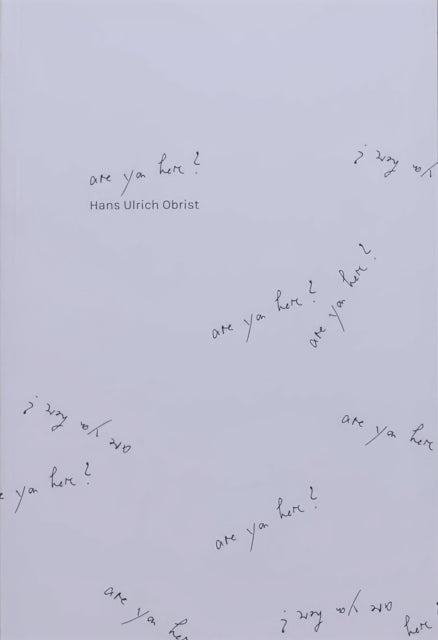 are you here?
Hans Ulrich Obrist
you here?
are you here?
are you here?
are you here?
are you here
you here?
are you here?
are you her
are you here?
here?